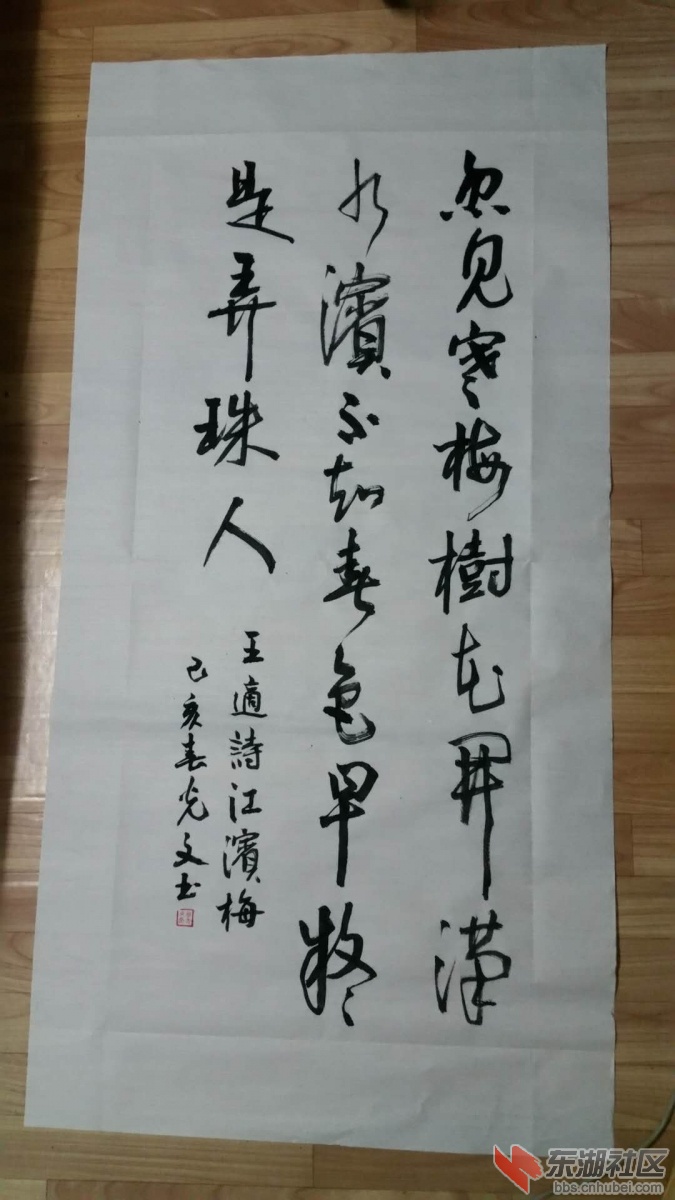 忽見寒梅樹花開漢
水濱不知春色早疑
是弄珠人
王適詩江濱梅
己亥春光文书
东湖社区
bbs.cnhubei.com